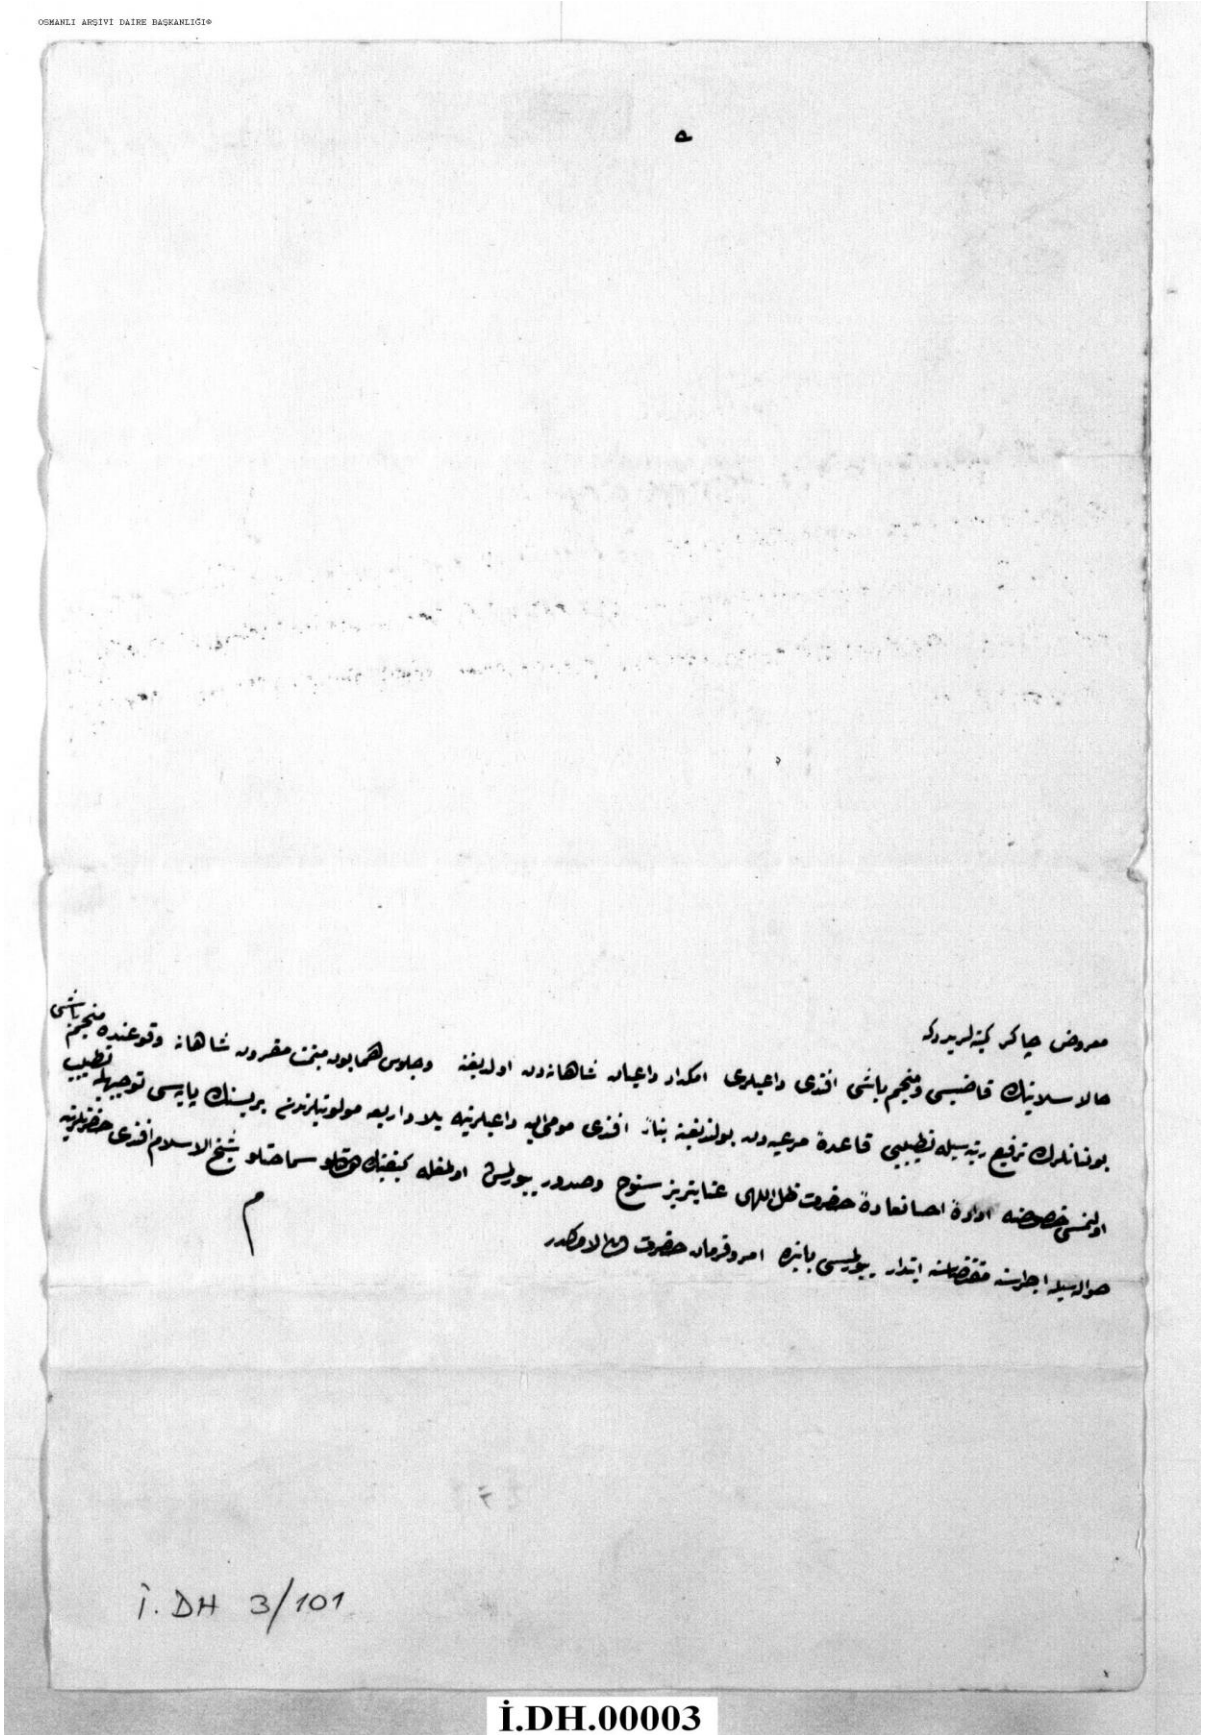 OSMANLI ARŞİVİ DAİRE BAŞKANLIĞI®
معروض چاکر کمینه‌لریدر که
حالا سلانیک قاضیسی و منجم باشی افندی داعیلری امکدار داعیان شاهانه‌دن اولدیغنه وجلوس همایون میمنت مقرون شاهانه وقوعنده منجم باشی
بولنانلرك ترفیع رتبه‌سیله تطییبی قاعدهٔ مرعیه‌دن بولندیغنه بناءً افندی مومی الیه داعیلرینه بلاد اربعه مولویتلرندن بریسنك پایه‌سی توجیهیله تطییب
اولنمسی خصوصنه ارادهٔ احسانعادهٔ حضرت ظل اللهی عنایتریز سنوح وصدور بیورلمش اولمغله کیفیتك سماحتلو شیخ الاسلام افندی حضرتلرینه
حواله‌سیله اجرای مقتضاسنه ابتدار بیورلمسی بابنده امر وفرمان حضرت من له الامرکدر
م
İ.DH 3/101
İ.DH.00003